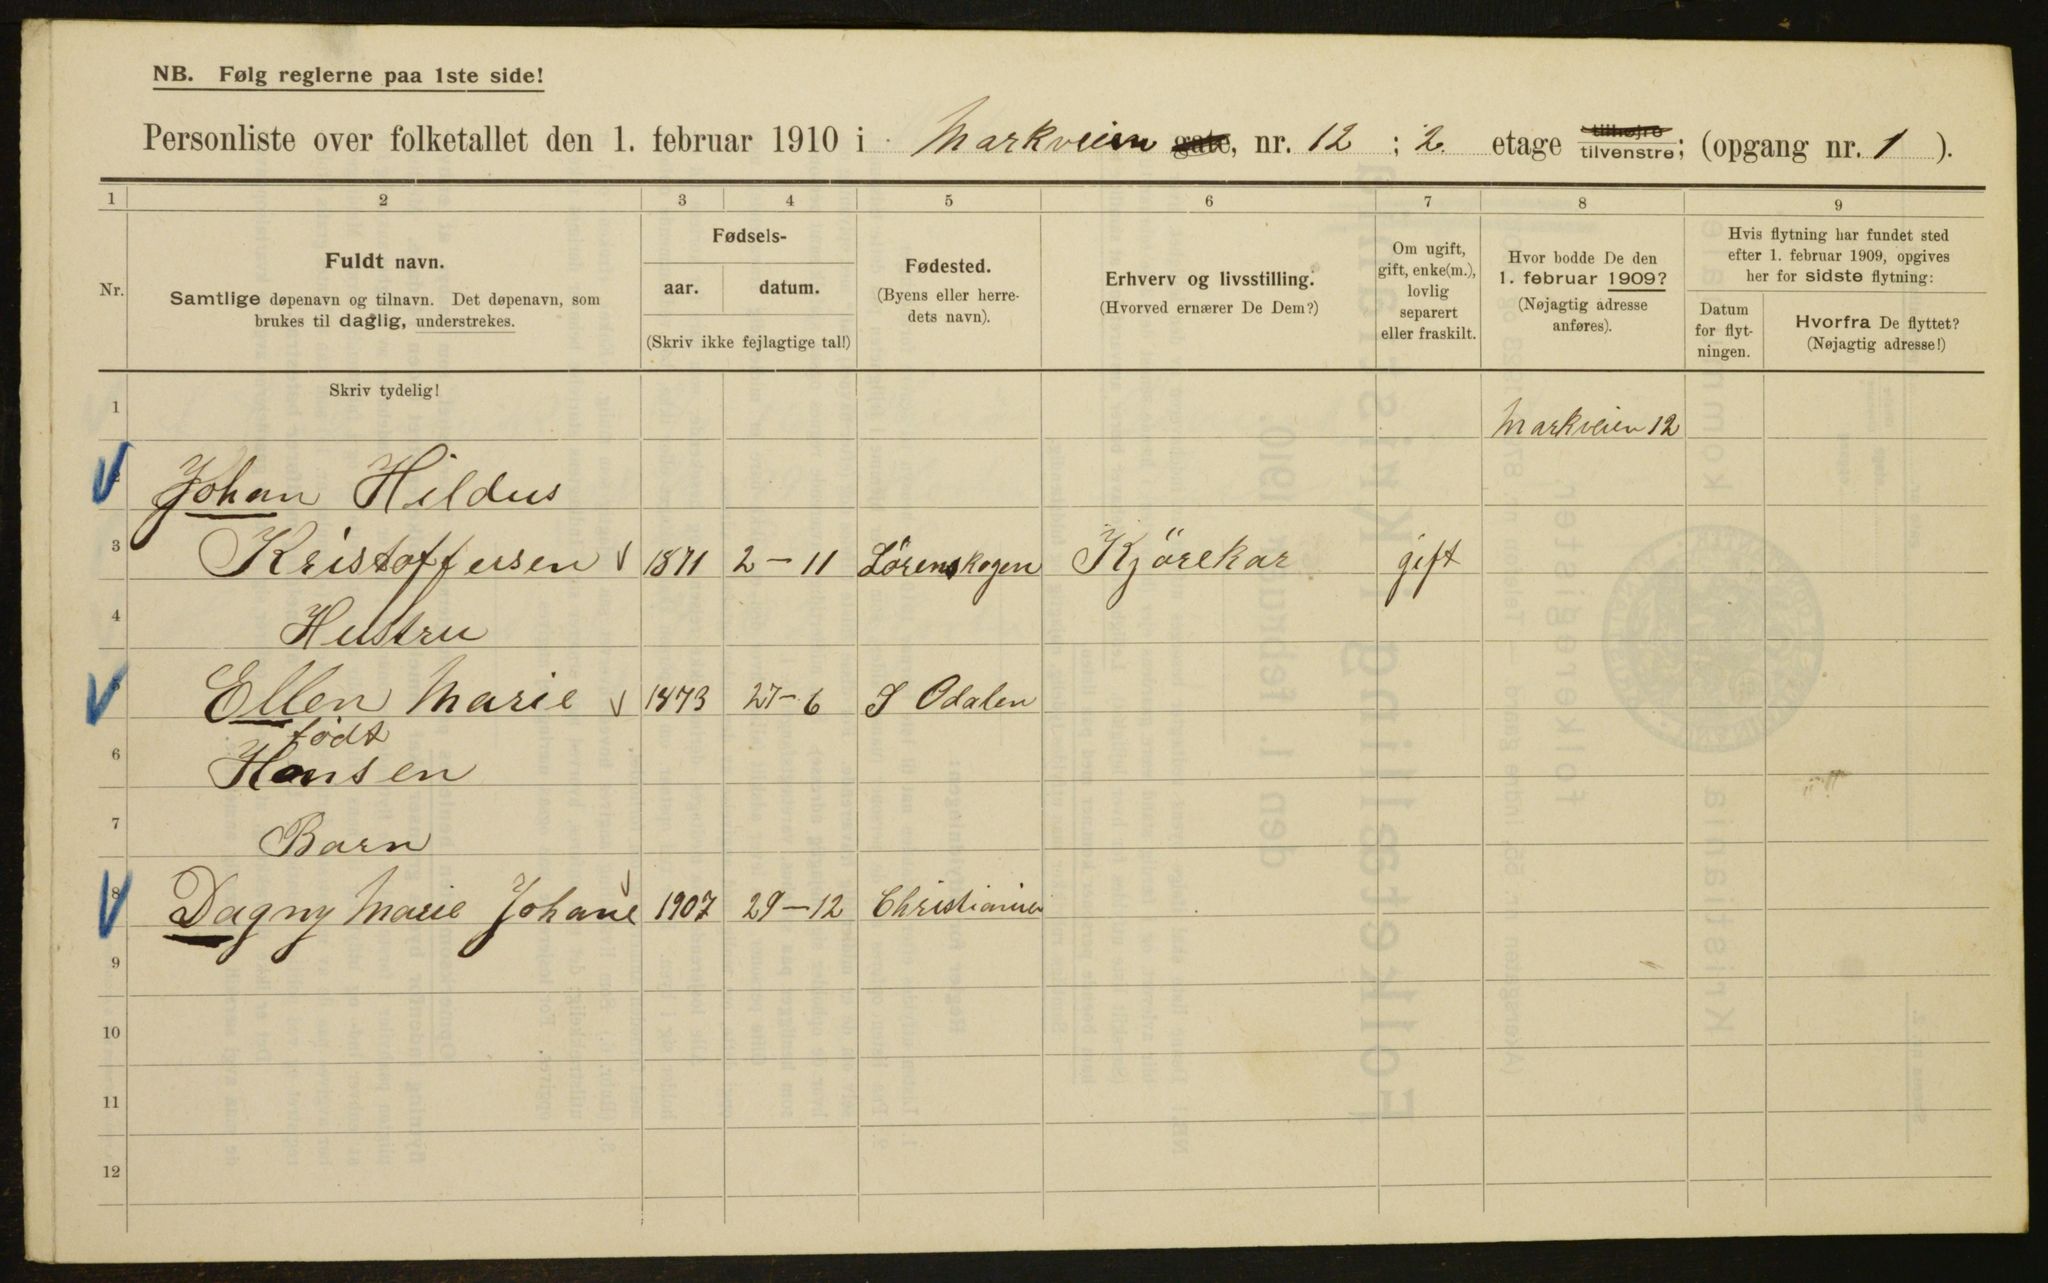 NB. Følg reglerne paa 1ste side!
Personliste over folketallet den 1. februar 1910 i Markveien gate, nr. 12 ; 2 etage tilhøjre tilvenstre; (opgang nr. 1 ).
1 2 3 4 5 6 7 8 9
Nr.
Fuldt navn.
Samtlige døpenavn og tilnavn. Det døpenavn, som
brukes til daglig, understrekes.
Fødsels-
aar. datum.
(Skriv ikke fejlagtige tal!)
Fødested.
(Byens eller herre-
dets navn).
Erhverv og livsstilling.
(Hvorved ernærer De Dem?)
Om ugift,
gift, enke(m.),
lovlig
separert
eller fraskilt.
Hvor bodde De den
1. februar 1909?
(Nøjagtig adresse
anføres).
Hvis flytning har fundet sted
efter 1. februar 1909, opgives
her for sidste flytning:
Datum
for flyt-
ningen.
Hvorfra De flyttet?
(Nøjagtig adresse!)
Skriv tydelig!
1 Markveien 12
2 Johan Hildus
3 Kristoffersen 1871 2-11 Lörenskogen Kjörekar gift
4 Hustru
5 Ellen Marie 1873 27-6 S Odalen
født
6 Hansen
7 Barn
8 Dagny Marie Johane 1907 29-12 Christiania
9
10
11
12